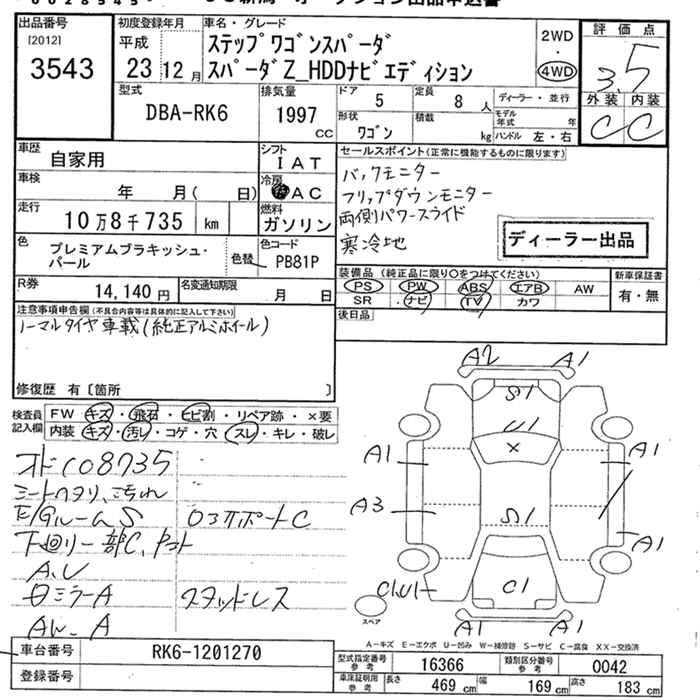 出品番号
[2012]
3543
初度登録年月
平成
23年12月
車名・グレード
ステップワゴンスパーダ
スパーダZ_HDDナビエディション
2WD
・
4WD
評価点
3.5
外装 内装
C C
型式
DBA-RK6
排気量
1997
CC
ドア
5
定員
8人
形状
ワゴン
積載
kg
ディーラー・並行
モデル年式 年
ハンドル 左・右
車歴
自家用
シフト
IAT
車検
年 月( 日)
冷房
AC
走行
10万8千735 km
燃料
ガソリン
色
プレミアムブラキッシュ・パール
色替
色コード
PB81P
R券
14,140円
名変通知期限
月 日
セールスポイント(正常に機能するものに限ります)
バックモニター
フリップダウンモニター
両側パワースライド
寒冷地
ディーラー出品
装備品(純正品に限り○をつけてください)
PS PW ABS エアB AW
SR ナビ TV カワ
新車保証書
有・無
後日品
注意事項申告欄(不具合内容等は具体的に記入して下さい)
ノーマルタイヤ車載(純正アルミホイール)
修復歴 有〔箇所 〕
検査員記入欄
FW キズ・飛石・ヒビ割・リペア跡・×要
内装 キズ・汚レ・コゲ・穴・スレ・キレ・破レ
オドC08735
シートヘタリ、汚れ
E/GルームS
下回り一部C、
A、U
ミラーA
スタッドレス
AW A
A2 A1
S1
U1
×
A1 A1
A3
S1
A1
C1
C1U1
A1 A1
スペア
A-キズ E-エクボ U-凹み W-補修跡 S-サビ C-腐食 XX-交換済
車台番号
RK6-1201270
登録番号
型式指定番号 参考
16366
類別区分番号 参考
0042
車庫証明用 参考
長さ 469cm
幅 169cm
高さ 183cm